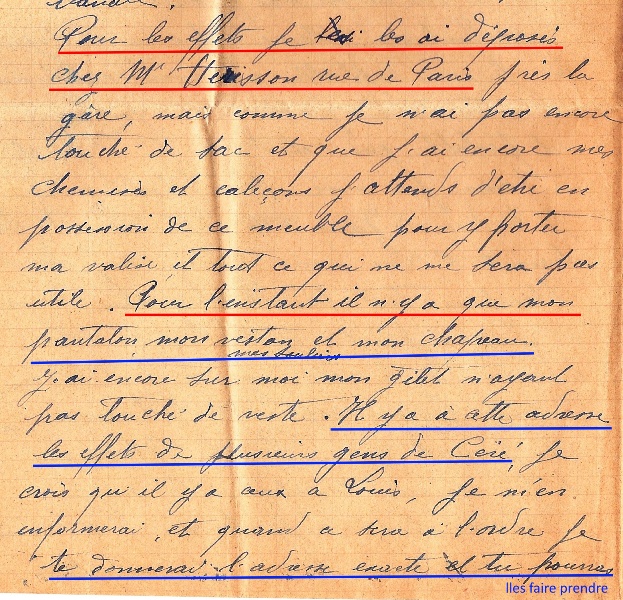 Pour les effets je les ai déposés
chez Mr Verisson rue de Paris près la
gare, mais comme je n'ai pas encore
touché de sac et que j'ai encore mes
chemises et caleçons j'attends d'être en
possession de ce meuble pour y porter
ma valise et tout ce qui ne me sera pas
utile. Pour l'instant il n'y a que mon
pantalon mon veston et mon chapeau.
mes souliers
J'ai encore sur moi mon gilet n'ayant
pas touché de veste. Il y a à cette adresse
les effets de plusieurs gens de Céré, je
crois qu'il y a ceux a Louis, je m'en
informerai, et quand ce sera à l'ordre je
te donnerai l'adresse exacte et tu pourras
lles faire prendre